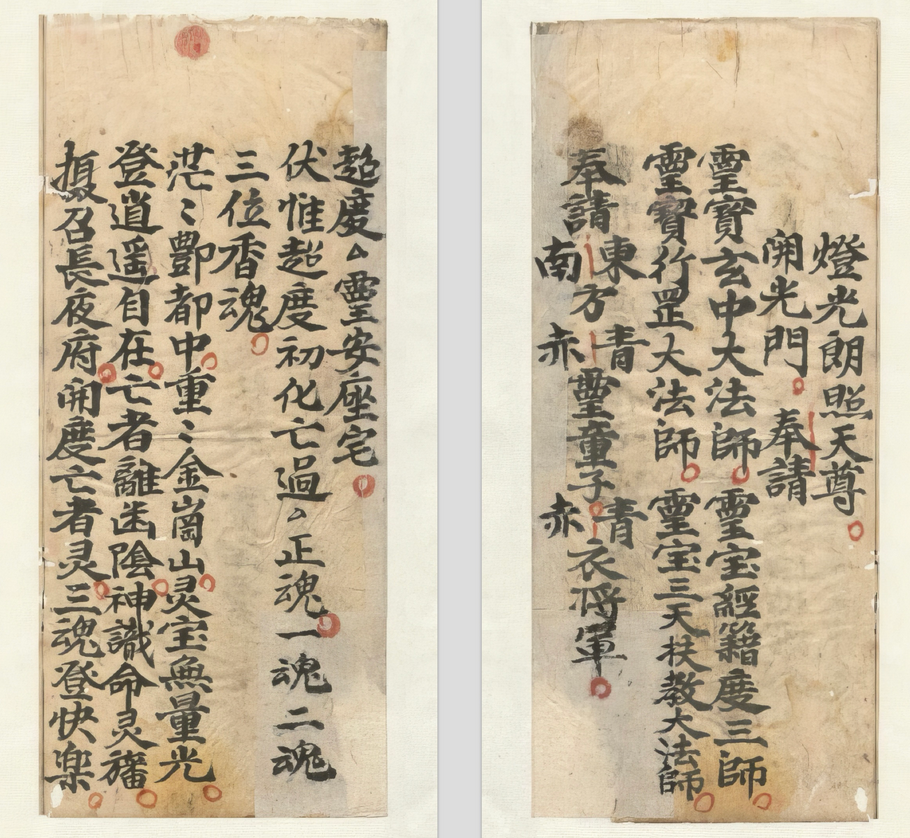 燈光朗照天尊
開光門 奉請
霊寶玄中大法師 霊宝經籍度三師
霊寶行罡大法師 霊宝三天扶教大法師
奉請東南方青赤霊童子青赤衣將軍
超度△霊安座宅
伏惟超度初化亡過△正魂一魂二魂
三位香魂
茫〻酆都中重〻金崗山灵宝無量光
登逍遥自在亡者離凼陰神識命灵旛
摄召長夜府開度亡者灵三魂登快楽